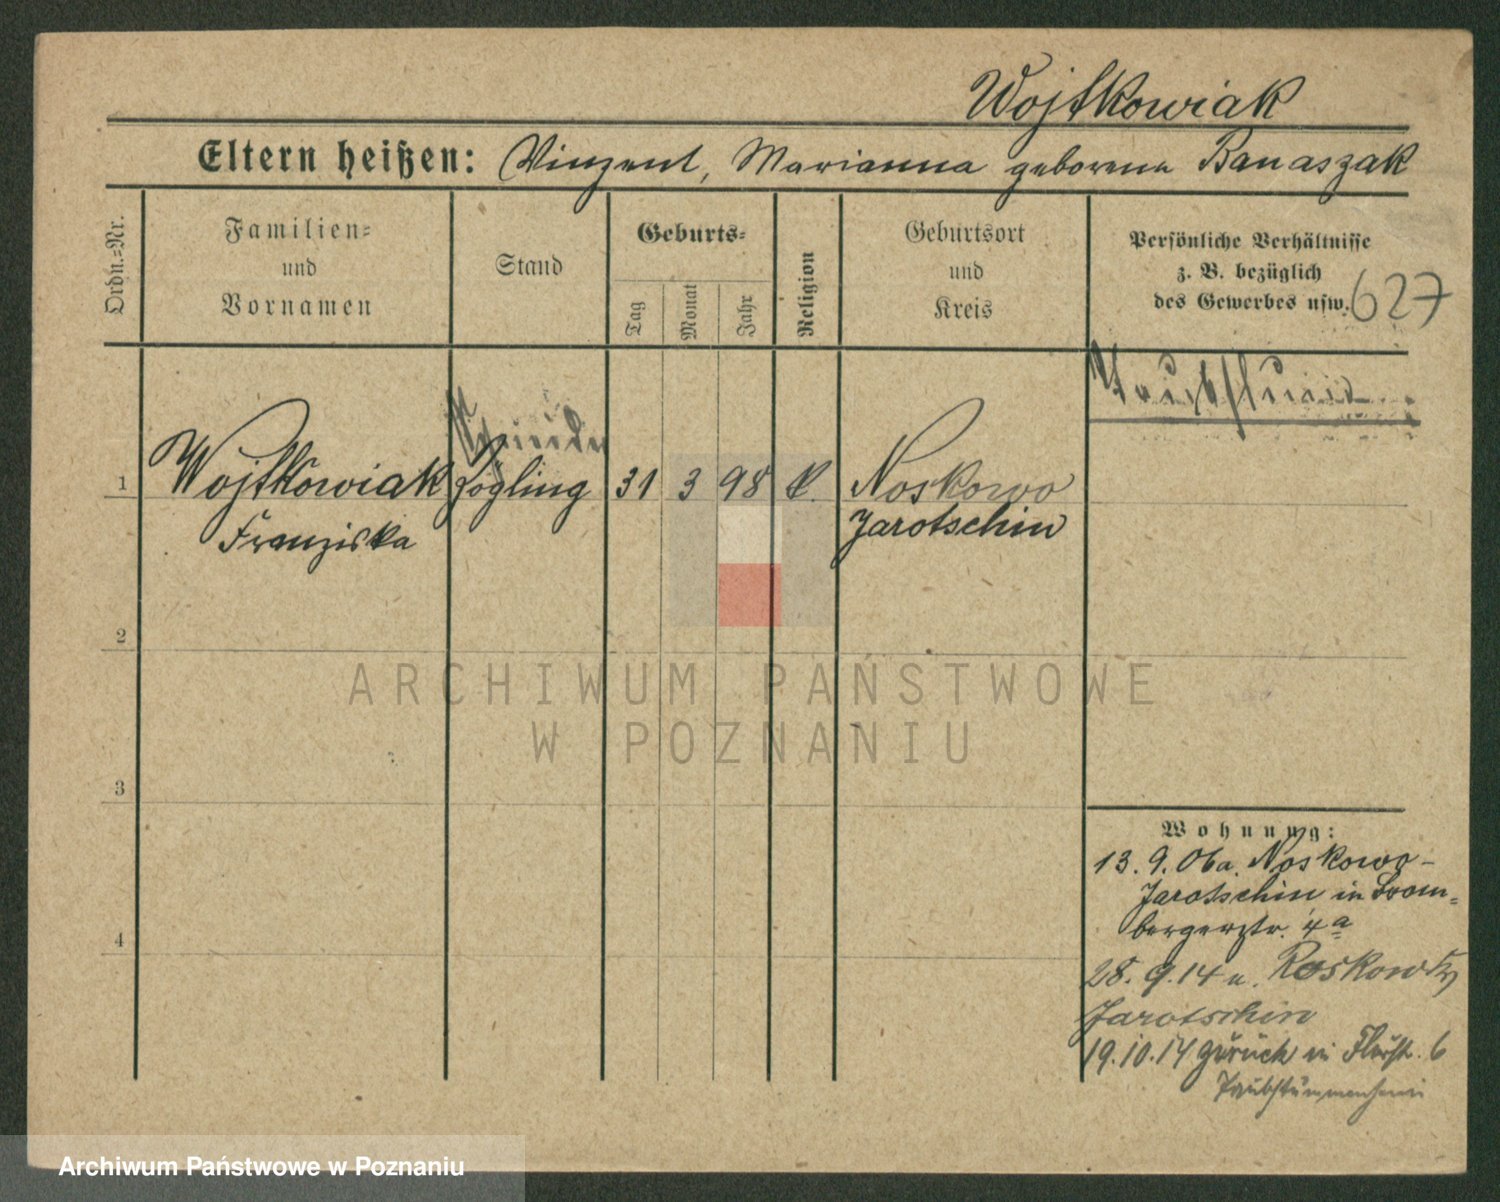 Wojtkowiak
Eltern heißen: Vinzent, Marianna geborene Banaszak
Ordn.-Nr.
Familien-
und
Vornamen
Stand
Geburts-
Tag
Monat
Jahr
Religion
Geburtsort
und
Kreis
Persönliche Verhältnisse
z. B. bezüglich
des Gewerbes usw.
627
Taubstumm
1
Wojtkowiak
Franziska
Zögling
31
3
98
k.
Noskowo
Jarotschin
2
3
4
Wohnung:
13. 9. 06 a. Noskowo-
Jarotschin in Brom-
bergerstr. 4a
28. 9. 14 n.
Jarotschin
19. 10. 14 zurück in 6
ARCHIWUM PAŃSTWOWE
W POZNANIU
Archiwum Państwowe w Poznaniu